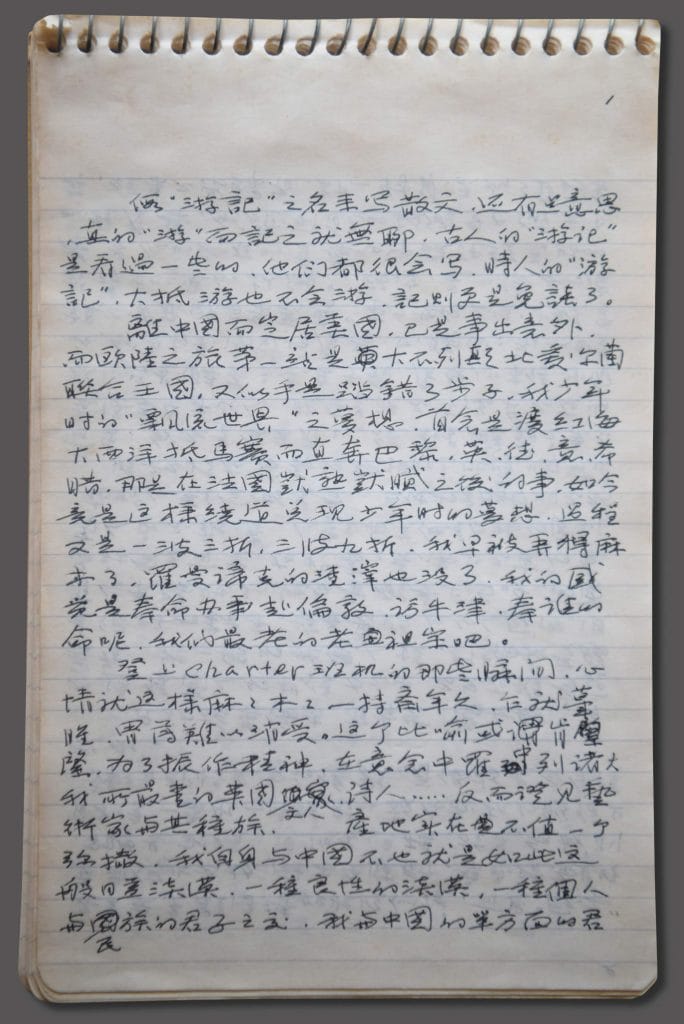 1
假“游記”之名来写散文，还有些意思
，真的“游”而記之就無聊，古人的“游记”
是看過一些的，他们都很会写，時人的“游
記”，大抵游也不会游，記則更是免談了。
離中国而定居美國，已是事出意外，
而欧陸之旅第一站是大不列颠北爱尔蘭
聯合王國，又似乎是踏錯了步子，我少年
时的“飄流世界”之夢想，首先是渡红海
大西洋抵馬賽而直奔巴黎，英、德、意、希
腊，那是在法國之後的事，如今
竟是这様绕道兑现少年时的夢想，过程
又是一波三折，三波九折，我早被弄得麻
木了，羅曼諦克的渣滓也没了，我的感
覚是奉命办事赴倫敦、访牛津，奉谁的
命呢，我们最老的老祖宗吧。
登上Charter班机的那些瞬间，心
情就这様麻麻木木
，胃，難以消受。这个比喻或谓
，为了振作精神，在意念中羅列诸大
我所最喜的英国文人、诗人……反而證见藝
術家与其種族、產地实在不值一个
弥撒，我自身与中國不也就是如此这
般日益淡漠，一種良性的淡漠，一種個人
与國民族的君子之交，我与中國的单方面的君